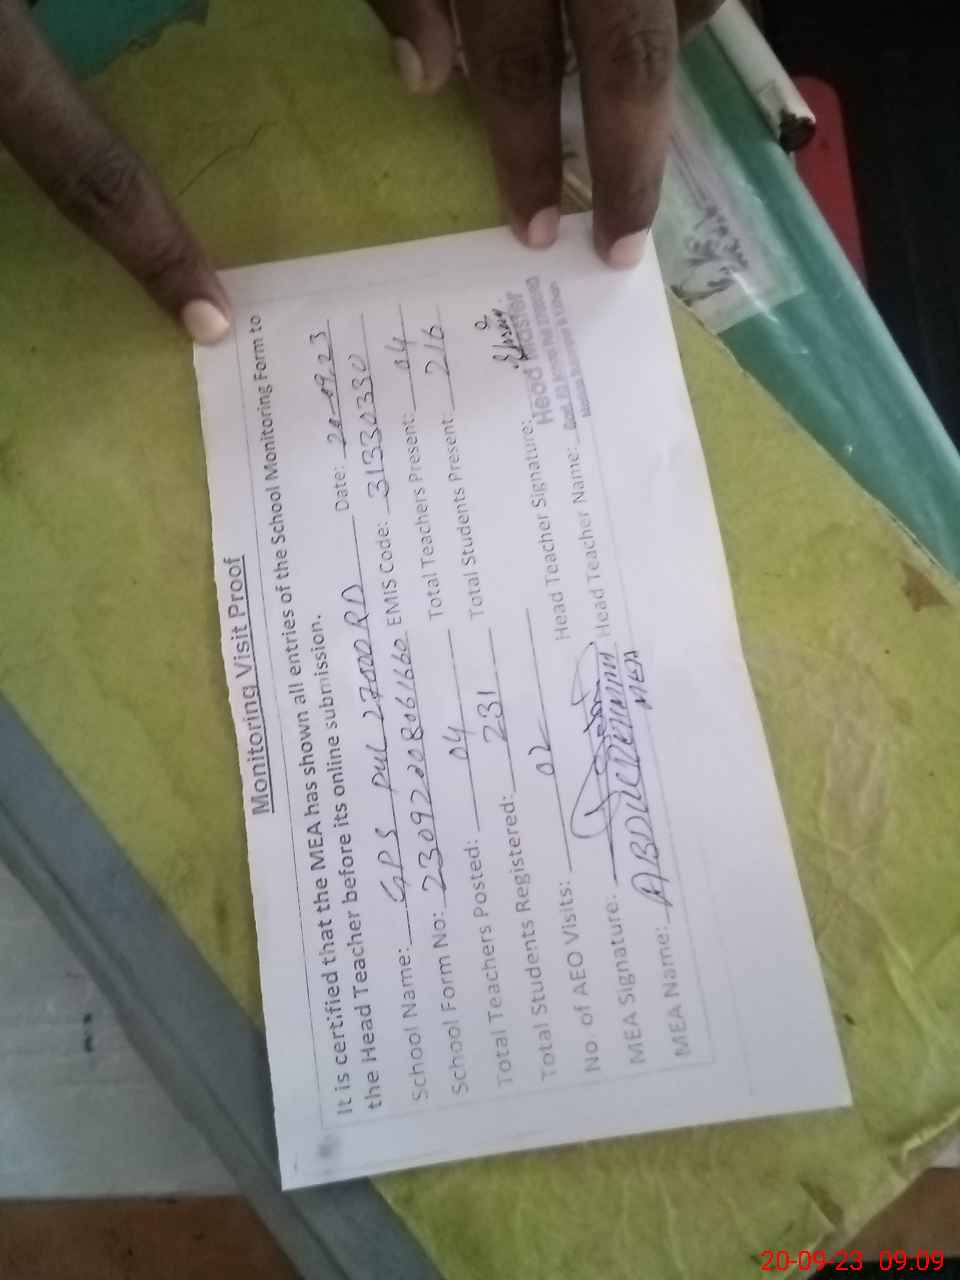 Monitoring Visit Proof
It is certified that the MEA has shown all entries of the School Monitoring Form to
the Head Teacher before its online submission.
School Name: GPS Pul 27000 RD Date: 20-09-23
School Form No: 23092208061660 EMIS Code: 31330330
Total Teachers Posted: 04 Total Teachers Present: 04
Total Students Registered: 231 Total Students Present: 216
No of AEO Visits: 02
MEA Signature: Head Teacher Signature:
Head Master
MEA Name: Head Teacher Name:
MEA
20-09-23 09:09